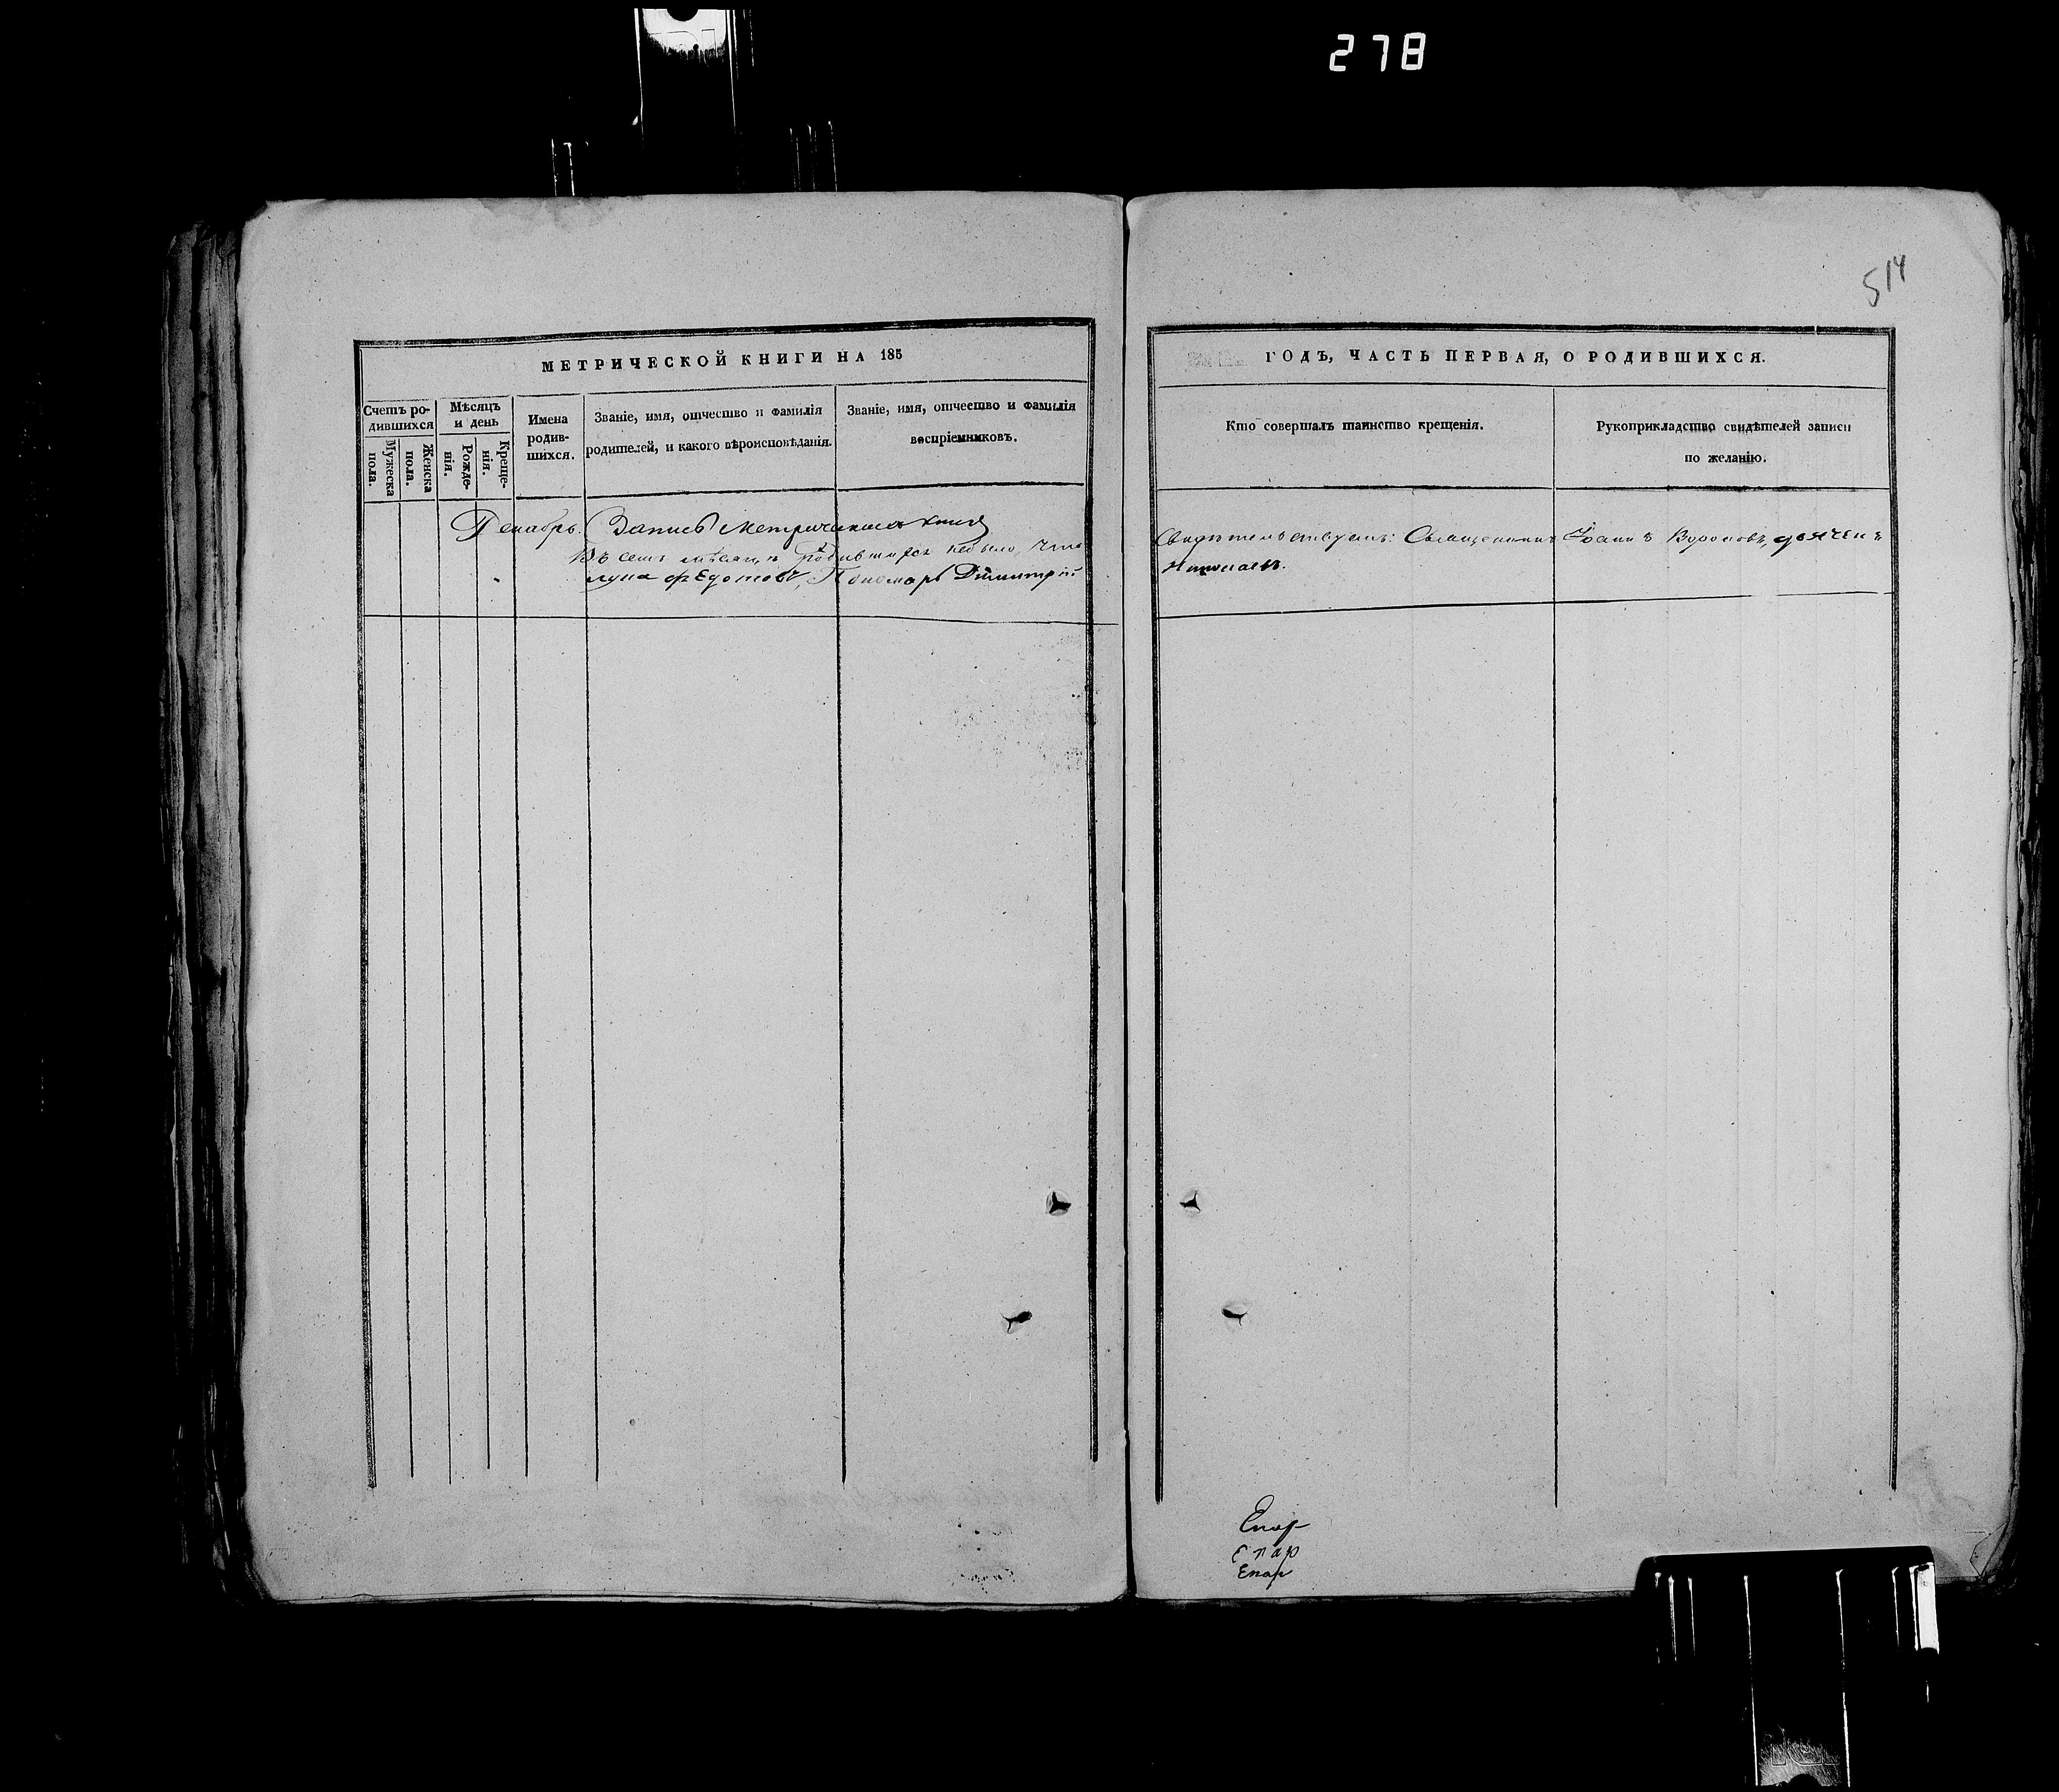 278
514
МЕТРИЧЕСКОЙ КНИГИ НА 185
ГОДЪ, ЧАСТЬ ПЕРВАЯ, О РОДИВШИХСЯ.
Счетъ ро-
дившихся
Мужеска
пола.
Женска
пола.
Мѣсяцъ
и день
Рожде-
нія.
Креще-
нія.
Имена
родив-
шихся.
Званіе, имя, отчество и фамилія
родителей, и какого вѣроисповѣданія.
Званіе, имя, отчество и фамилія
воспріемниковъ.
Кто совершалъ таинство крещенія.
Рукоприкладство свидѣтелей записи
по желанію.
Декабрь.
Запись Метрическихъ книгъ
Въ семъ мѣсяцѣ родившихся небыло, что
лука Федотовъ, Пономарь Дімитрій
Свидѣтельствуемъ: Священникъ Іоаннъ Вороновъ, дьячекъ
Николаевъ.
Епар
Епар
Епар